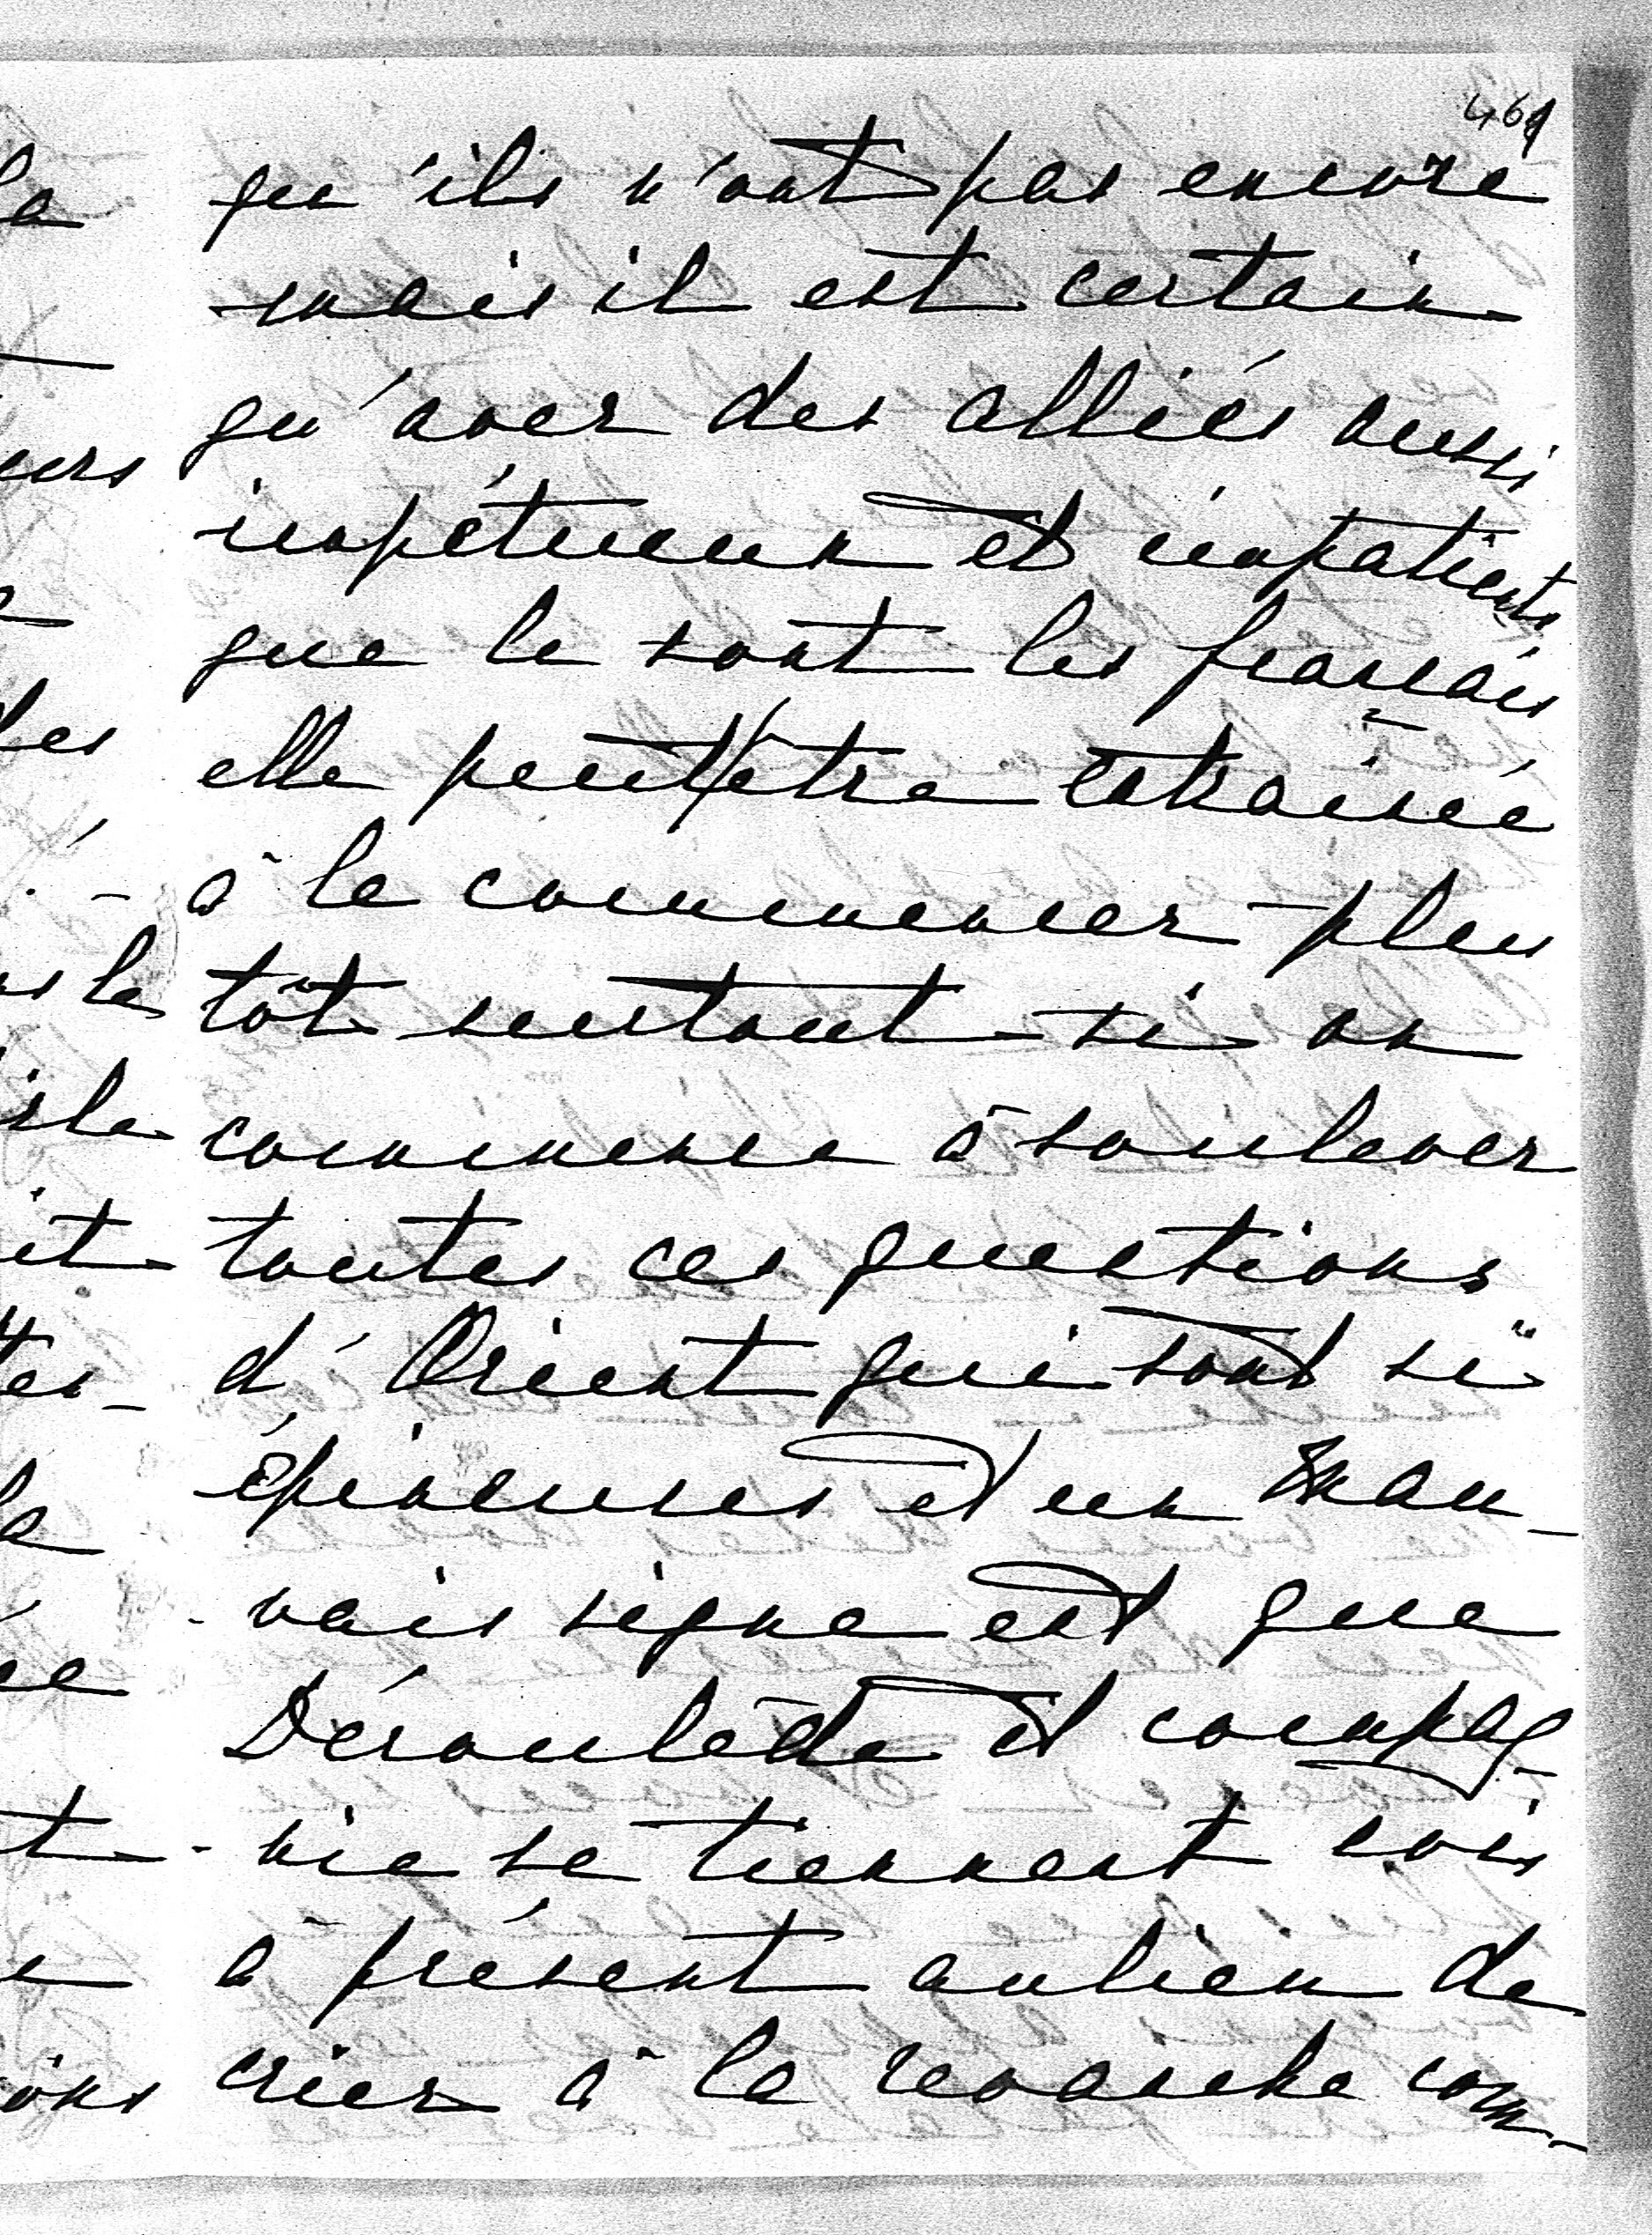 461
qu'ils n'ont pas encore
mais il est certain
qu'avec des alliés aussi
impétueux et impatients
que le sont les français
elle peut être entrainée
à le commencer plus
tôt surtout si on
commence à soulever
toutes ces questions
d'Orient qui sont si
épineuses et un mau-
vais signe est que
Déroulède et compag-
nie se tiennent cois
à présent au lieu de
crier à la revanche com-